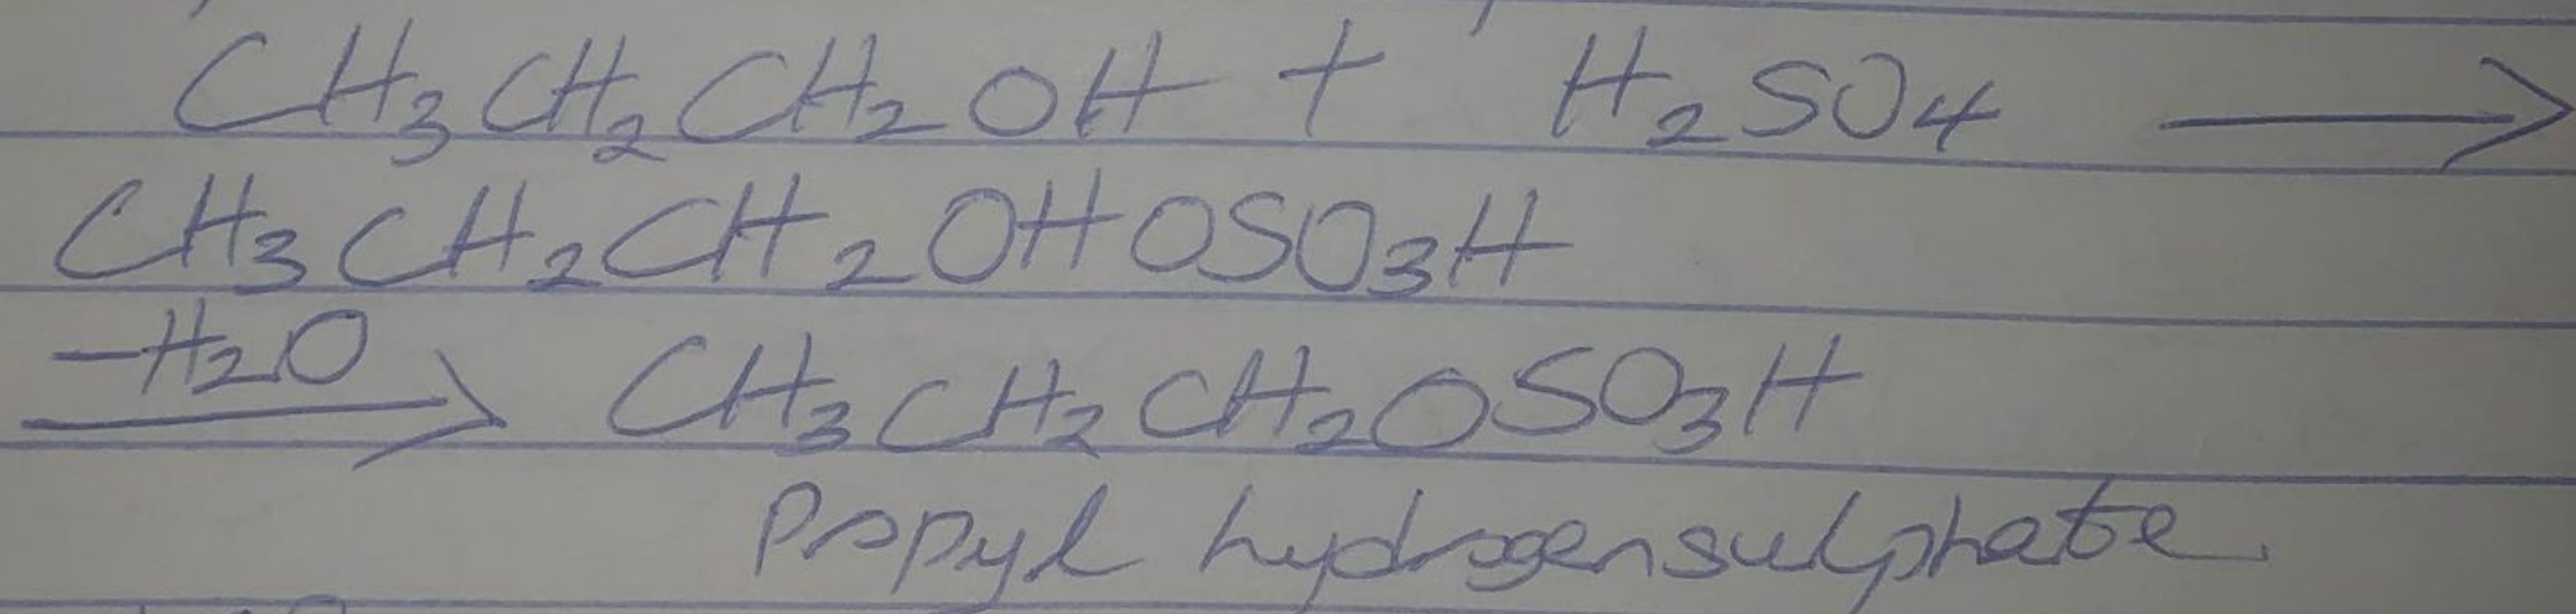 CH₃CH₂CH₂OH + H₂SO₄ ⟶
CH₃CH₂CH₂OHOSO₃H
-H₂O ⟶ CH₃CH₂CH₂OSO₃H
Propyl hydrogensulphate